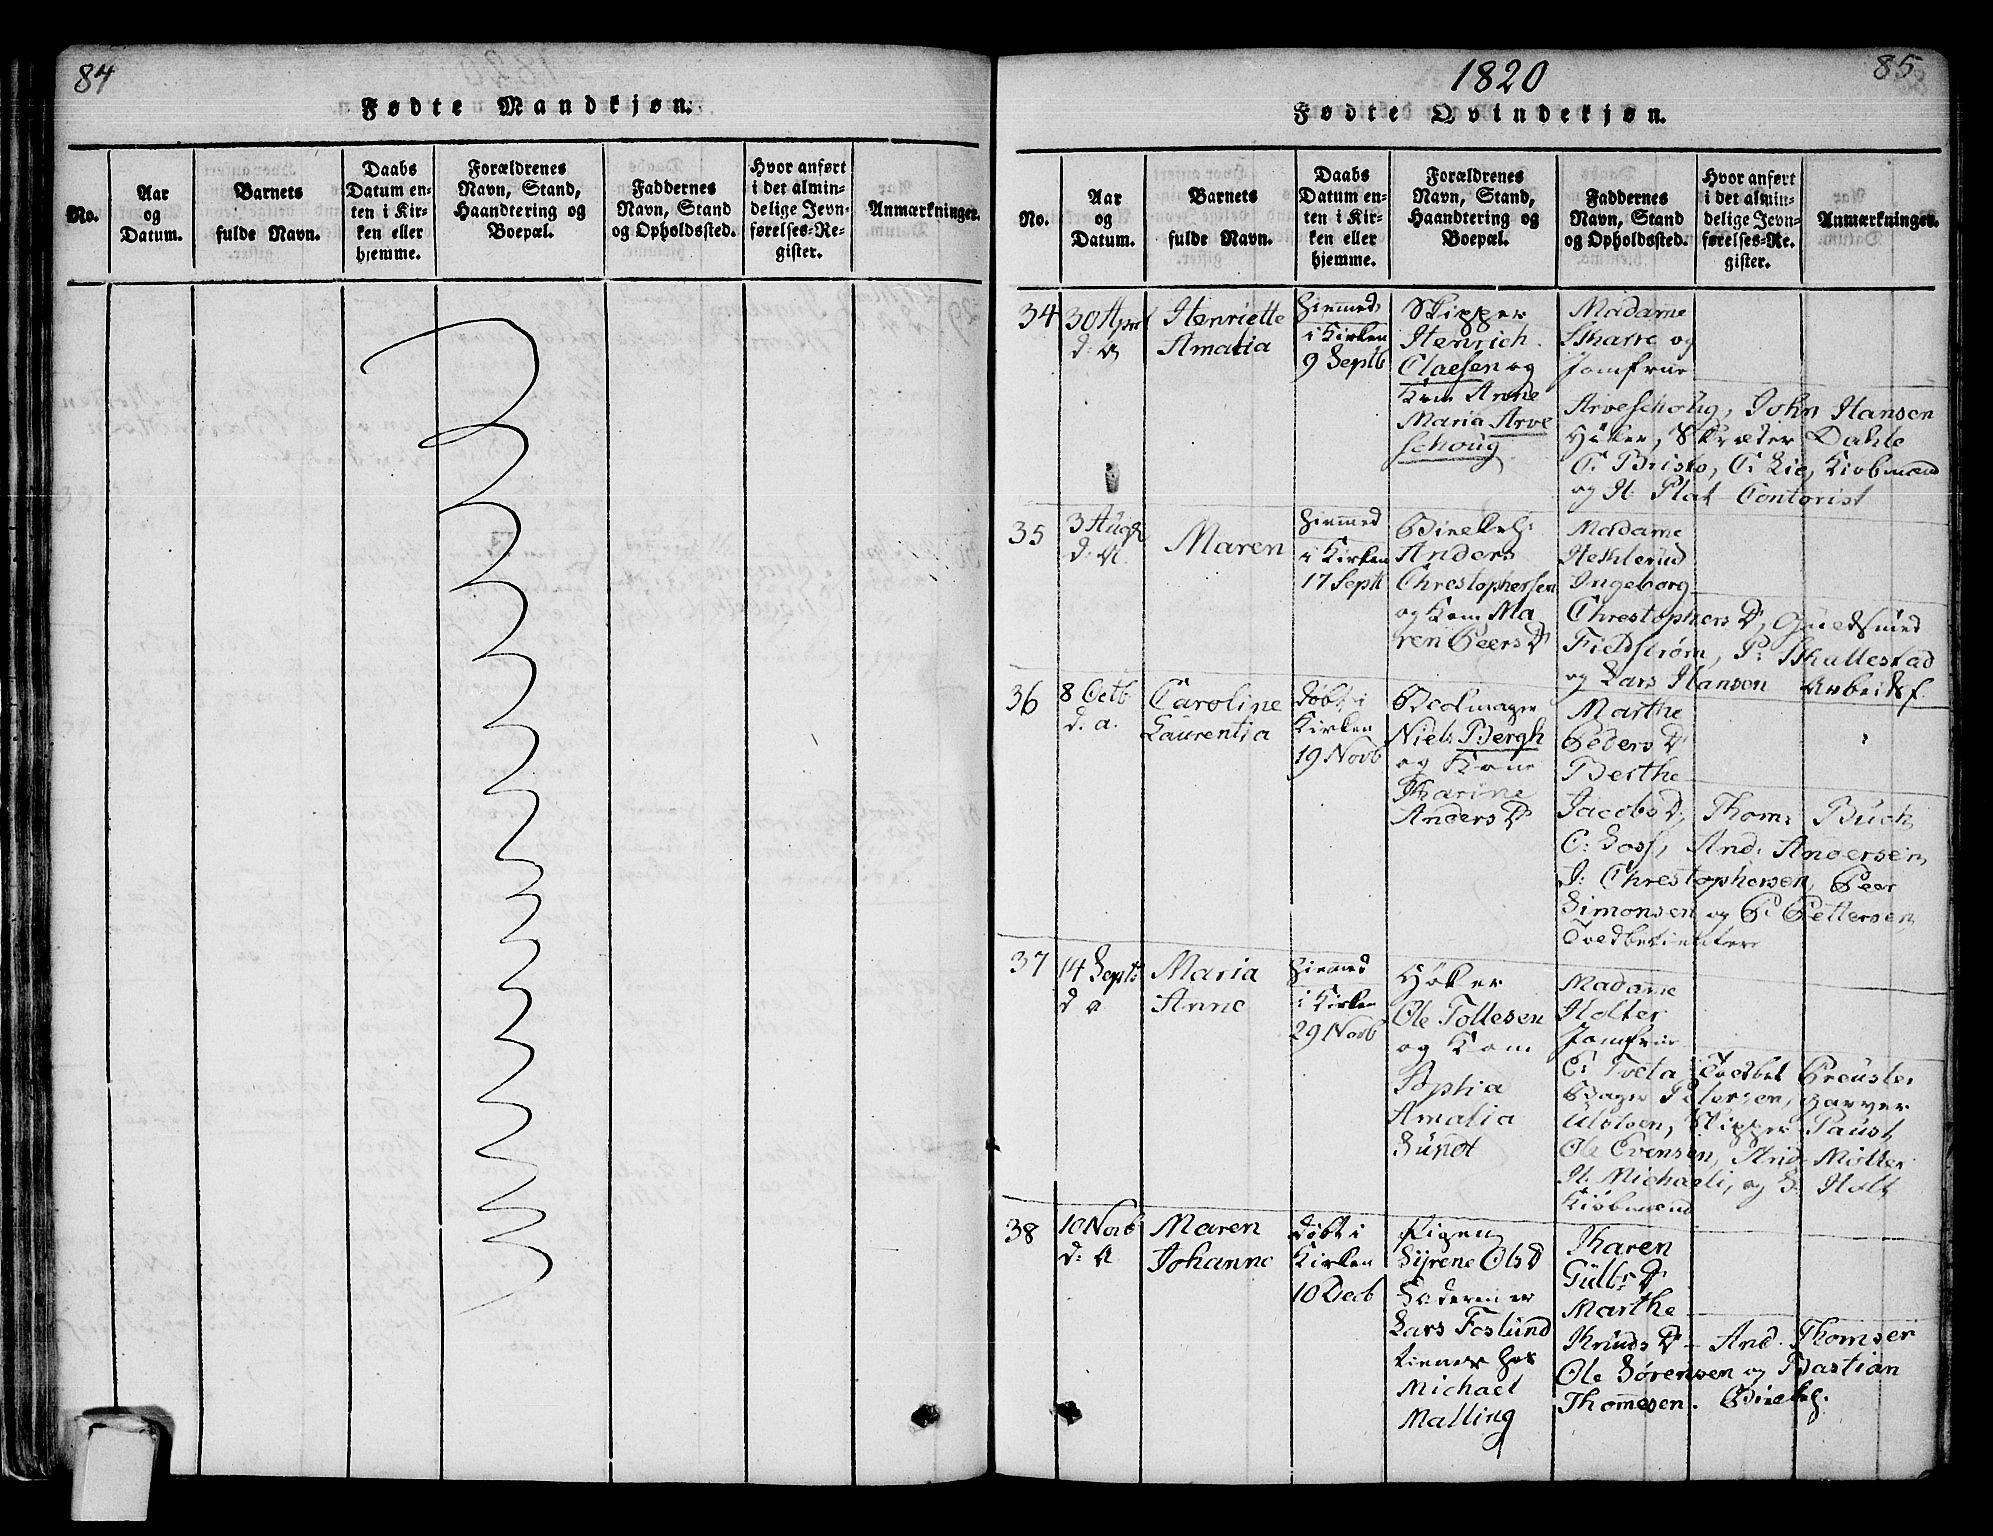 84
Fødte Mandkjøn.
No.
Aar
og
Datum.
Barnets
fulde Navn.
Daabs
Datum en-
ten i Kir-
ken eller
hjemme.
Forældrenes
Navn, Stand,
Haandtering og
Boepæl.
Faddernes
Navn, Stand
og Opholdssted.
Hvor anført
i det almin-
delige Jevn-
førelses-Re-
gister.
Anmærkninger.
1820
85
Fødte Qvindekjøn.
No.
Aar
og
Datum.
Barnets
fulde Navn.
Daabs
Datum en-
ten i Kir-
ken eller
hjemme.
Forældrenes
Navn, Stand,
Haandtering og
Boepæl.
Faddernes
Navn, Stand
og Opholdssted.
Hvor anført
i det almin-
delige Jevn-
førelses-Re-
gister.
Anmærkninger.
34
30 Apr
d: a
Henriette
Amalia
Hiemed
i Kirken
9 Septb
Skipper
Henrich
Claesen og
Kone Anne
Maria Arve
schoug
Madame
Skarre og
Jomfrue
Arveschoug, John Hansen
Høker, Skræder Dahle
C: Bristo, C: Lie, Kiøbmænd
og H: Plat Contorist
35
3 Aug
d: a.
Maren
Hiemed
i Kirken
17 Septb
Anders
Christophersen
og Kone Ma
ren Peers D
Madame
Hesklerud
Ingeborg
Christophers D, Guldsmed
Fieldstrøm, P: Skallestad
og Lars Hansen Arbeidsf.
36
8 Octb
d. a.
Caroline
Laurentia
døbt i
Kirken
19 Novb
Niels Bergh
og Kone
Karine
Anders D
Marthe
Peders D
Berthe
Jacobs D, Thom: Buch,
And: Andersen,
J: Christophersen, Peer
Simonsen og P: Pettersen,
37
14 Septb
d a
Maria
Anne
Hiemed
i Kirken
29 Novb
Høker
Ole Tollesen
og Kone
Sophia
Amalia
Sundt
Madame
Holter
Jomfrue
C: Tveta
Bager Petersen, Garver
Ulolsen, Skipper Paust
Ole Evensen, And: Møller
H. Michaeli, og S: Holt
Kiøbmænd
38
10 Novb
d: a
Maren
Johanne
døbt i
Kirken
10 Decb
Pigen
Syrene Ols D
Faderen er
Lars Foslund
tiener hos
Michael
Malling
Karen
Gulbr D
Marthe
Knuds D - And. Thomsen
Ole Sørensen og Bastian
Thomesen.